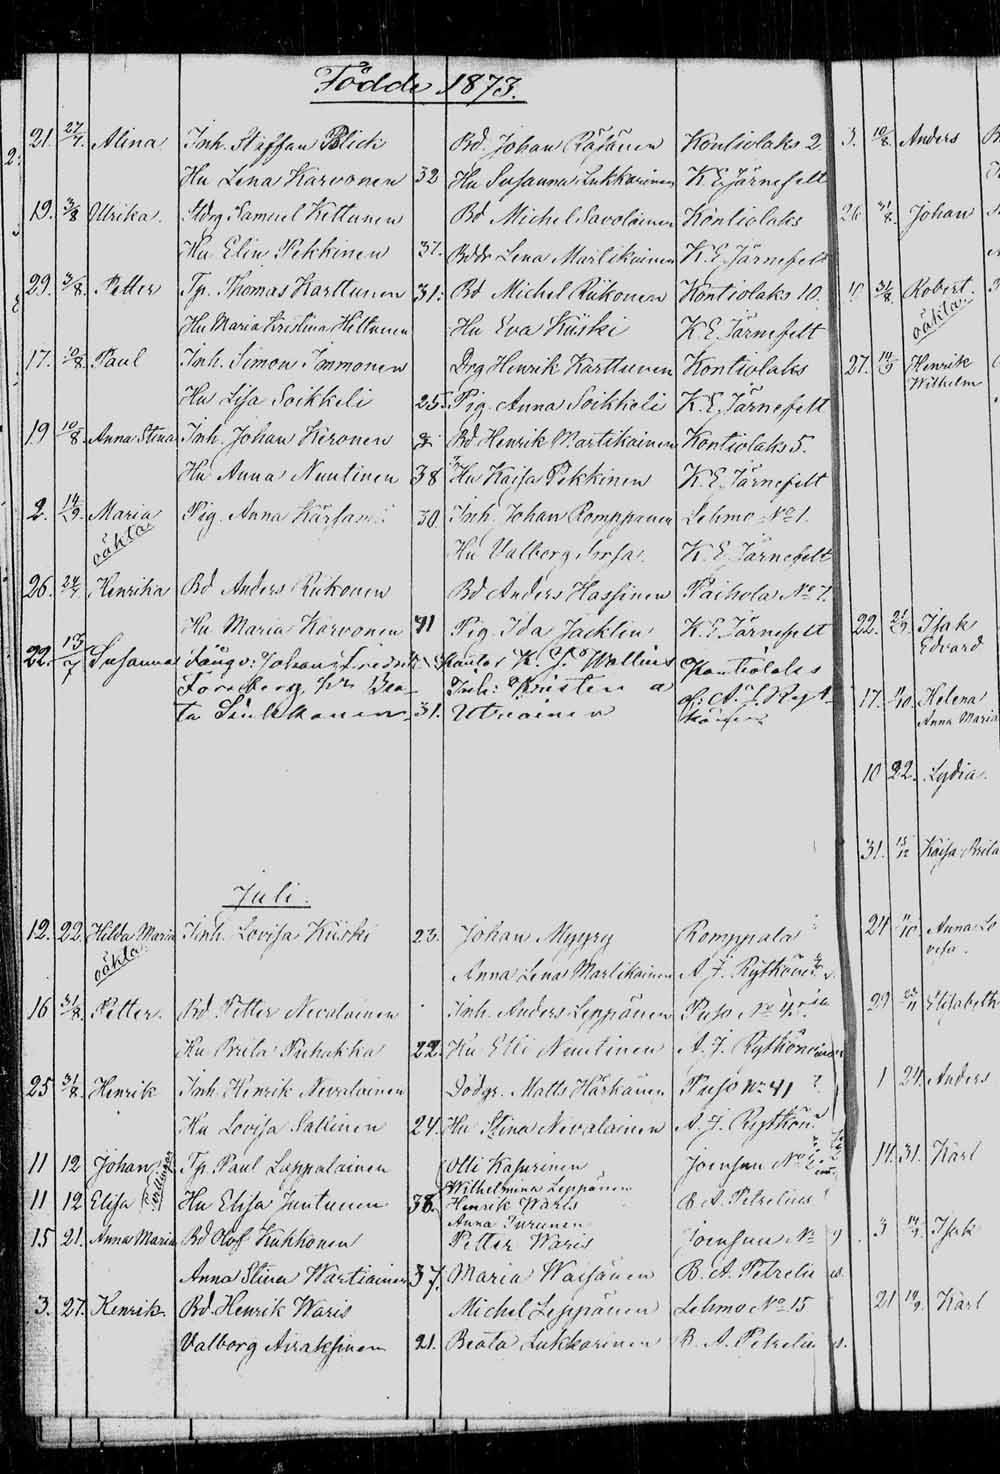 Födde 1873.
21. 27/7. Alina Inh. Staffan Blick Bd. Johan Räsänen Kontiolaks 2
Hu Lena Karvonen 32 Hu Susanna Lukkarinen K. E. Järnefelt
19. 3/8 Ulrika. Stdrg Samuel Kettunen Bd Michel Savolainen Kontiolaks
Hu Elin Pekkinen 37. Bddr Lena Martikainen K. E. Järnefelt
29. 3/8. Petter Tp. Thomas Karttunen 31: Bd Michel Riikonen Kontiolaks 10.
Hu Maria Kristina Hiltunen Hu Eva Kiiski K. E. Järnefelt
17. 10/8. Paul Inh. Simon Immonen Drg Henrik Karttunen Kontiolaks
Hu Lisa Soikkeli 25. Pig. Anna Soikkeli K. E. Järnefelt
19 10/8. Anna Stina Inh. Johan Keronen Bd Henrik Martikainen Kontiolaks 5.
Hu Anna Nuutinen 38 Hu Kaisa Pekkinen K. E. Järnefelt
2. 14/9. Maria Pig. Anna Kärsämä 30 Inh. Johan Romppanen Lehmo No 1.
oäkta Hu Valborg K. E. Järnefelt
26. 24/7. Henrika Bd Anders Riikonen Bd Anders Hassinen Paihola No 7.
Hu Maria Karvonen 41 Pig. Ida Jacklin K. E. Järnefelt
22. 13/7 Susanna Fångv: Johan Fredrik Kantor K. J. Wallius Kontiolaks
Forsberg, hu Bea- Inh: Kristen a A. J. Ryt-
ta Sinkkonen 31. Utriainen könen
Juli.
12. 22. Hilda Maria Inh. Lovisa Kiiski 23. Johan Myyry Romppala
oäkta Anna Lena Martikainen A. J. Rytkönen
16 31/8. Petter. Bd. Petter Nevalainen Inh. Anders Leppänen Puso No 45.
Hu Brita Puhakka 22. Hu Elli Nuutinen A. J. Rytkönen
25 31/8. Henrik Inh. Henrik Nevalainen Matts Härkänen Puso No 41
Hu Lovisa Sallinen 24. Hu Stina Nevalainen A. J. Rytkön
11 12 Johan Tp. Paul Lappalainen Olli Kasurinen Joensuu No
Tvillingar Wilhelmina Leppänen
11 12 Elisa Hu Elisa Juntunen 38. Henrik Waris B. A. Petrelius
Anna Turunen
15 21. Anna Maria Bd Olof Kukkonen Petter Waris Joensuu No
Anna Stina Wartiainen 37. Maria Waisänen B. A. Petrelius.
3. 27. Henrik. Bd. Henrik Waris Michel Leppänen Lehmo No 15
Valborg Airaksinen 21. Beata Lukkarinen B. A. Petrelius.
3. 10/8. Anders
26 31/8. Johan
31/8. Robert.
oäkta
27. 14/9 Henrik
Wilhelm
22. 21/9 Isak
Edvard
17. Helena
Anna Maria
10 22. Lydia.
31. Kaisa Brita
24 Anna Lo
visa.
29 23/11 Elisabeth
1 24. Anders
14. 31. Karl
3 Isak
21 Karl